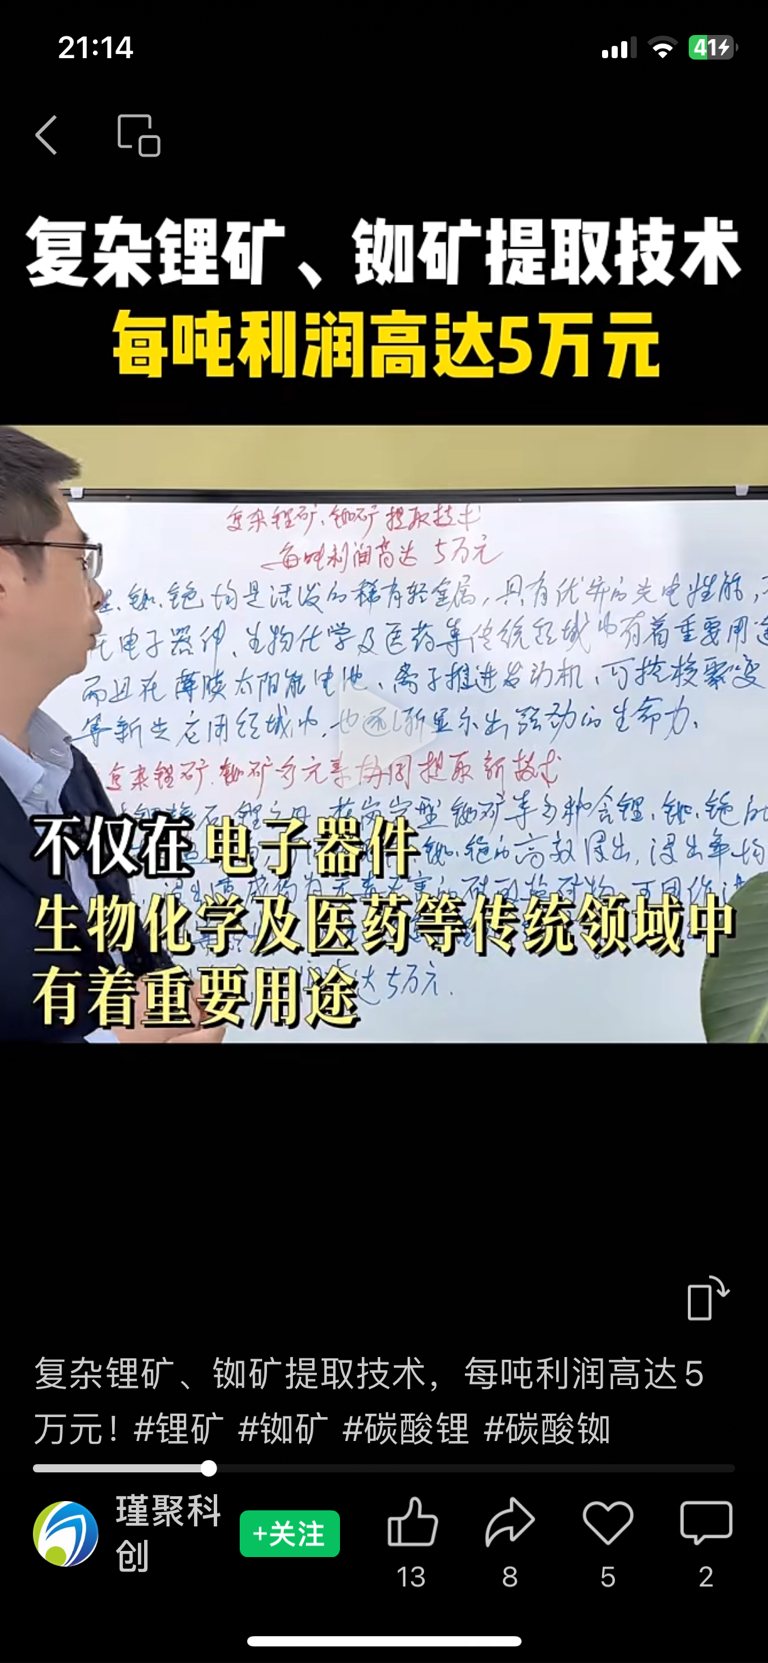 21:14
41
复杂锂矿、铷矿提取技术
每吨利润高达5万元
复杂锂矿、铷矿提取技术
每吨利润高达 5万元
铷、铯均是活泼的稀有轻金属,具有优异的光电性能,
电子器件、生物化学及医药等传统领域中有着重要用途
而且在薄膜太阳能电池、离子推进发动机、可控核聚变
等新兴应用领域中,也逐渐显示出强劲的生命力。
复杂锂矿、铷矿多元素协同提取新技术
型铷矿等多种含锂、铷、铯的
铷、铯的高效浸出,浸出率均
达5万元.
不仅在电子器件
生物化学及医药等传统领域中
有着重要用途
复杂锂矿、铷矿提取技术,每吨利润高达5
万元!#锂矿 #铷矿 #碳酸锂 #碳酸铷
瑾聚科
创
+关注
13
8
5
2